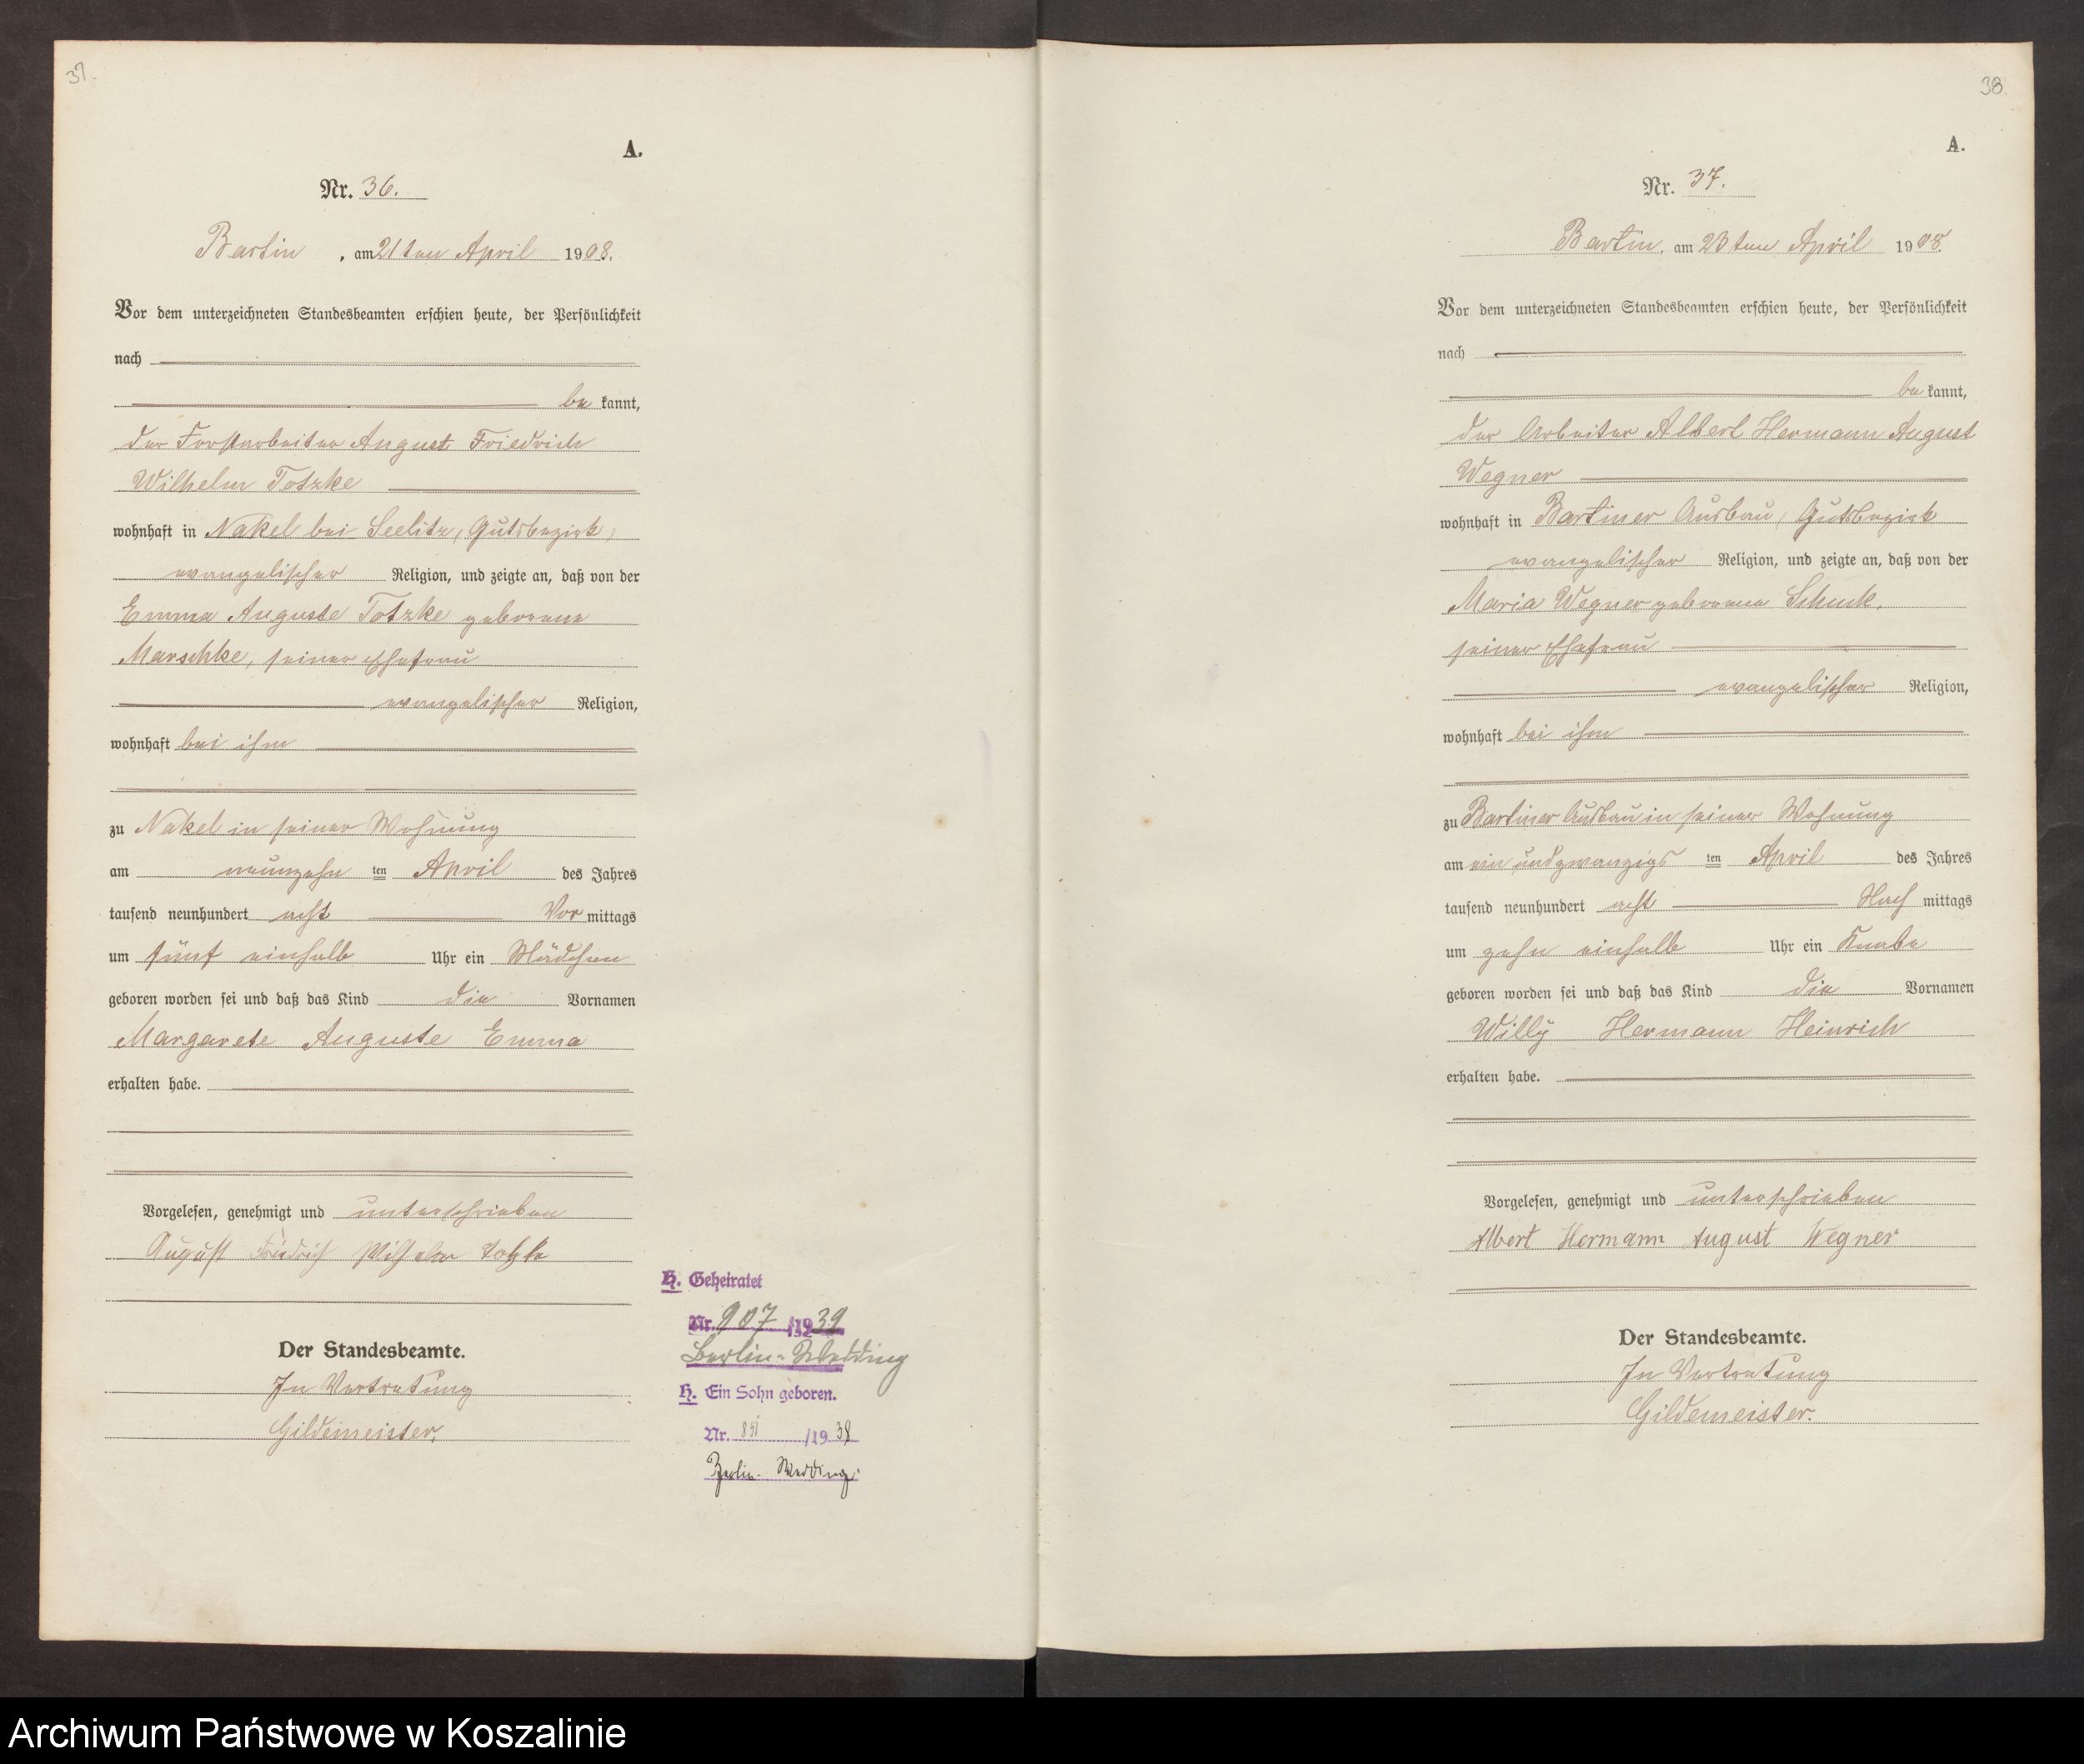 37.
A.
Nr. 36.
Bartin, am 21ten April 1908.
Vor dem unterzeichneten Standesbeamten erschien heute, der Persönlichkeit
nach
bekannt,
der Forstarbeiter August Friedrich
Wilhelm Totzke
wohnhaft in Nakel bei Seelitz, Gutsbezirk,
evangelischer Religion, und zeigte an, daß von der
Emma Auguste Totzke geborene
Marschke, seiner Ehefrau
evangelischer Religion,
wohnhaft bei ihm
zu Nakel in seiner Wohnung
am neunzehn ten April des Jahres
tausend neunhundert acht Vormittags
um fünf einhalb Uhr ein Mädchen
geboren worden sei und daß das Kind die Vornamen
Margarete Auguste Emma
erhalten habe.
Vorgelesen, genehmigt und unterschrieben
August Friedrich Wilhelm Totzke
Der Standesbeamte.
In Vertretung
Gildemeister.
H. Geheiratet
Nr. 907/1939
Berlin-Wedding
H. Ein Sohn geboren.
Nr. 851/1938
Berlin-Wedding.
38.
A.
Nr. 37.
Bartin, am 23ten April 1908.
Vor dem unterzeichneten Standesbeamten erschien heute, der Persönlichkeit
nach
bekannt,
der Arbeiter Albert Hermann August
Wegner
wohnhaft in Bartiner Ausbau, Gutsbezirk
evangelischer Religion, und zeigte an, daß von der
Maria Wegner geborene Schuck,
seiner Ehefrau
evangelischer Religion,
wohnhaft bei ihm
zu Bartiner Ausbau in seiner Wohnung
am ein und zwanzigs ten April des Jahres
tausend neunhundert acht Nachmittags
um zehn einhalb Uhr ein Knabe
geboren worden sei und daß das Kind die Vornamen
Willy Hermann Heinrich
erhalten habe.
Vorgelesen, genehmigt und unterschrieben
Albert Hermann August Wegner
Der Standesbeamte.
In Vertretung
Gildemeister.
Archiwum Państwowe w Koszalinie